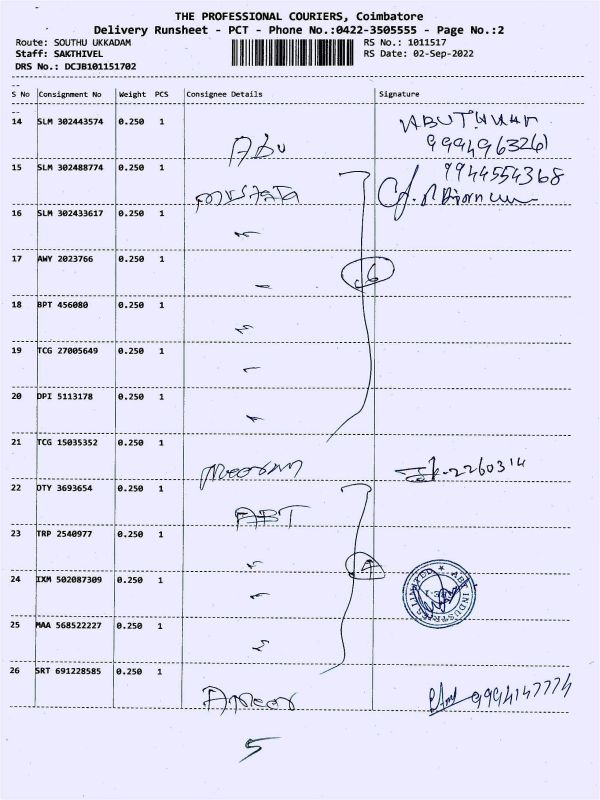 THE PROFESSIONAL COURIERS, Coimbatore
Delivery Runsheet - PCT - Phone No.:0422-3505555 - Page No.:2
Route: SOUTHU UKKADAM RS No.: 1011517
Staff: SAKTHIVEL RS Date: 02-Sep-2022
DRS No.: DCJB101151702
S No Consignment No Weight PCS Consignee Details Signature
14 SLM 302443574 0.250 1
9994963261
Abu
15 SLM 302488774 0.250 1 9944554368
16 SLM 302433617 0.250 1
17 AWY 2023766 0.250 1
6
18 BPT 456080 0.250 1
19 TCG 27005649 0.250 1
20 DPI 5113178 0.250 1
21 TCG 15035352 0.250 1
2260314
22 OTY 3693654 0.250 1
ABT
23 TRP 2540977 0.250 1
4
24 IXM 502087309 0.250 1
ABT INDUSTRIES LIMITED
25 MAA 568522227 0.250 1
26 SRT 691228585 0.250 1
9994147774
5